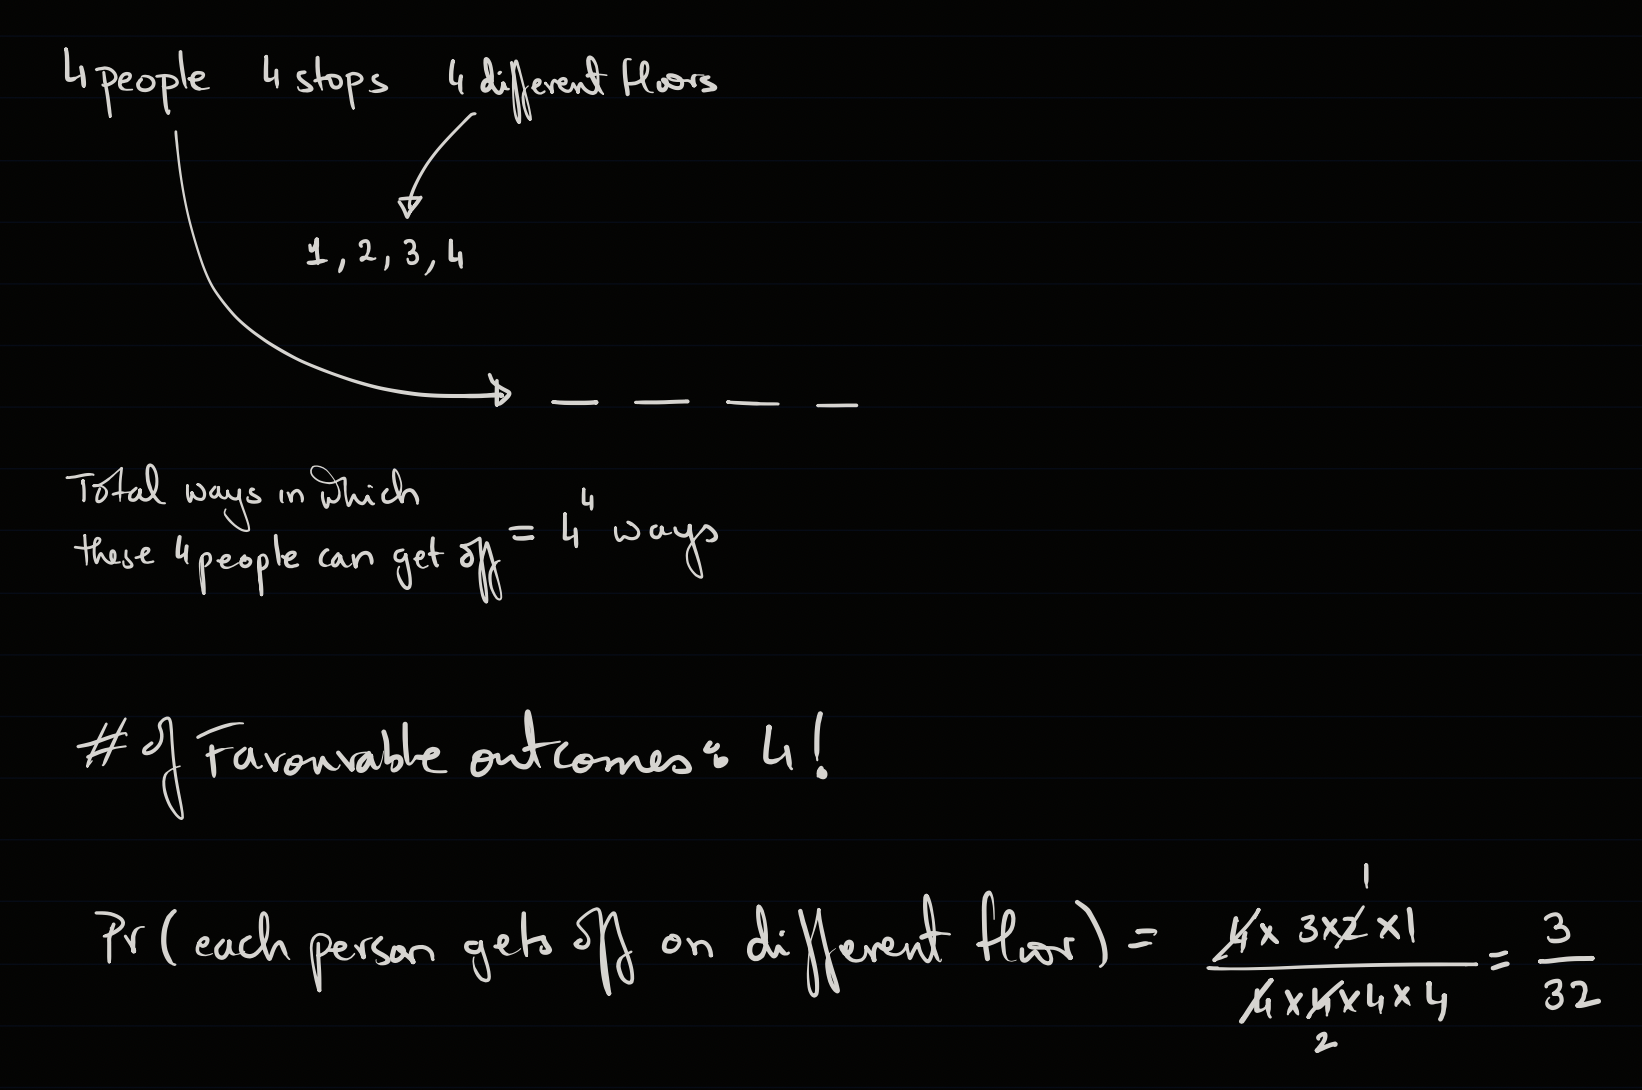 4 people 4 stops 4 different floors
1, 2, 3, 4
Total ways in which
these 4 people can get off = 4⁴ ways
# of Favourable outcomes: 4!
Pr (each person gets off on different floor) = 4 x 3 x 2 x 1 / 4 x 4 x 4 x 4 = 3 / 32
1
2